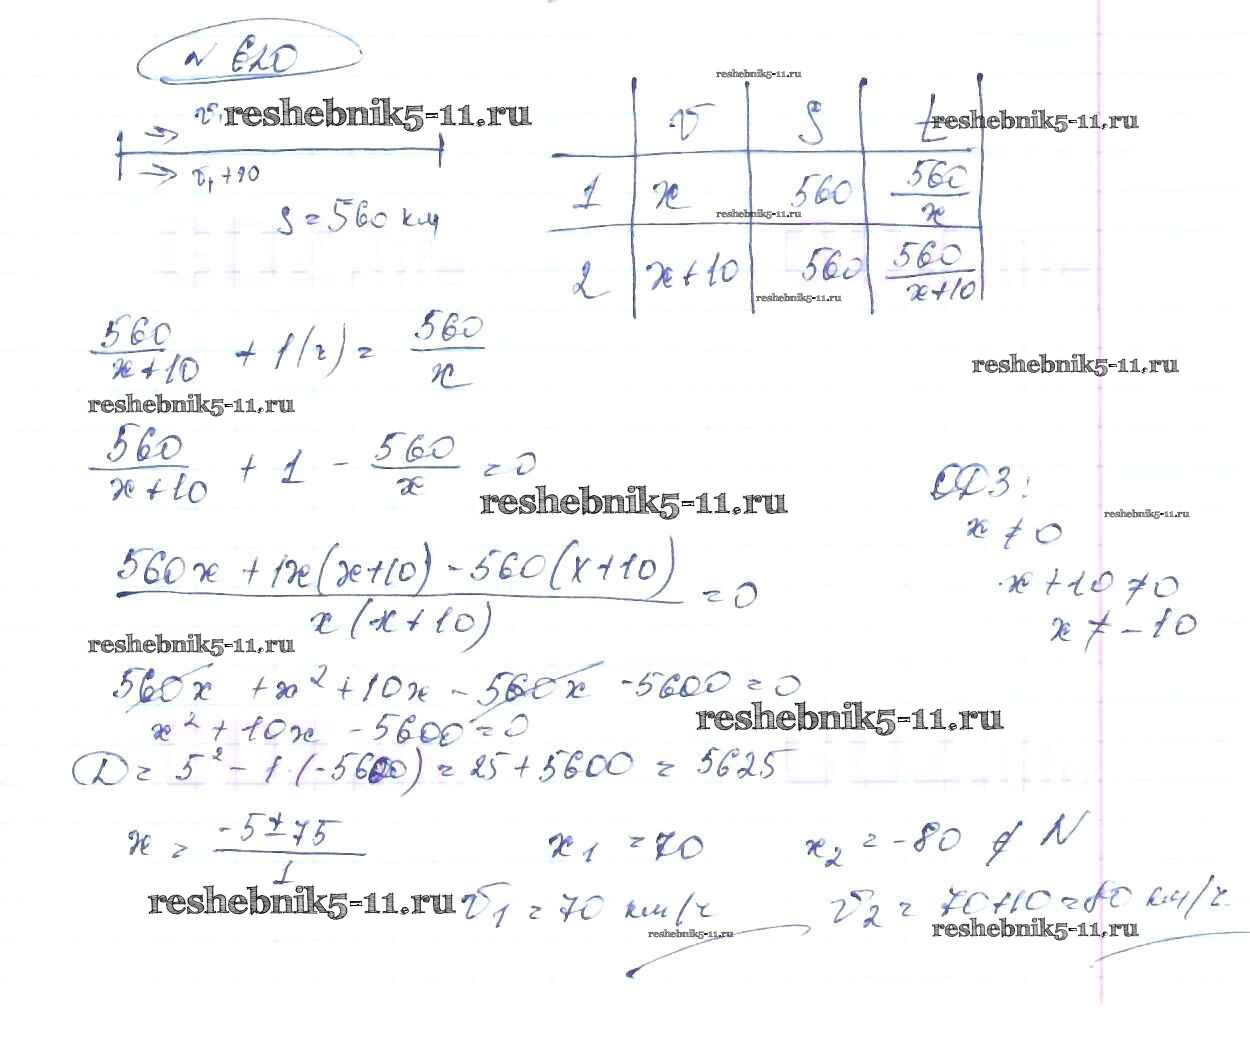 № 620
reshebnik5-11.ru
v₁
v₁+10
S = 560 км
reshebnik5-11.ru
v S t
reshebnik5-11.ru
1 x 560 560/x
reshebnik5-11.ru
2 x+10 560 560/(x+10)
reshebnik5-11.ru
560/(x+10) + 1(ч) = 560/x
reshebnik5-11.ru
reshebnik5-11.ru
560/(x+10) + 1 - 560/x = 0
reshebnik5-11.ru
ОДЗ:
x ≠ 0
reshebnik5-11.ru
x+10 ≠ 0
x ≠ -10
(560x + 1x(x+10) - 560(x+10))/(x(x+10)) = 0
reshebnik5-11.ru
560x + x² + 10x - 560x - 5600 = 0
reshebnik5-11.ru
x² + 10x - 5600 = 0
D = 5² - 1·(-5600) = 25 + 5600 = 5625
x = (-5 ± 75)/1 x₁ = 70 x₂ = -80 ∉ N
reshebnik5-11.ru
v₁ = 70 км/ч v₂ = 70+10 = 80 км/ч
reshebnik5-11.ru
reshebnik5-11.ru